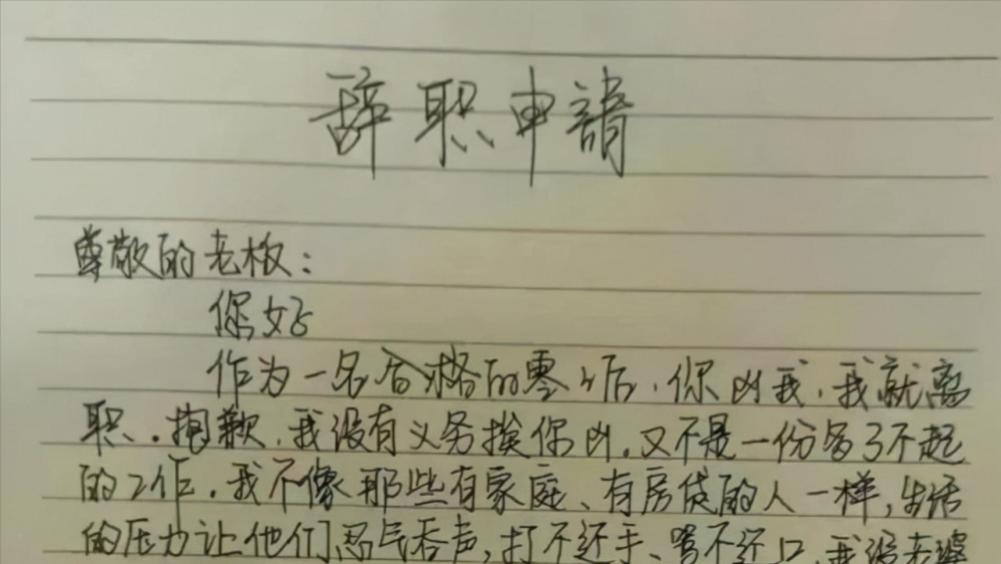 辞职申請
尊敬的老板：
你好
作为一名合格的零后，你凶我，我就离
职。抱歉，我没有义务挨你凶，又不是一份多了不起
的工作。我不像那些有家庭、有房贷的人一样，生活
的压力让他们忍气吞声，打不还手、骂不还口，我没老婆